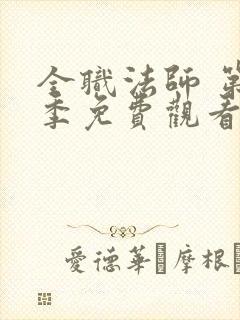 全職法師 第
季免費觀看
愛德華 摩根